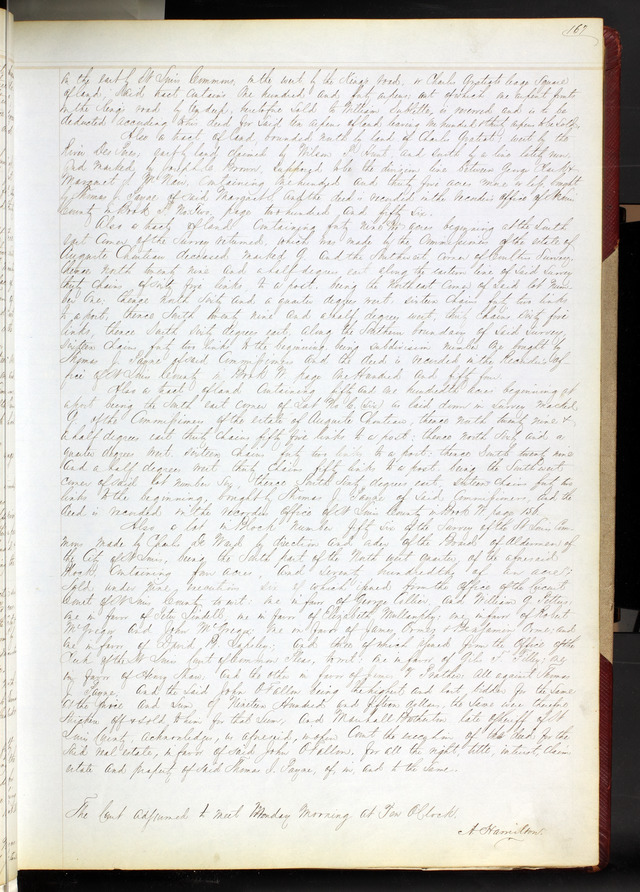 167
a city east by St Louis Commons, on the west by the Kings road, or Charles Gratiots league Square
of land; Said tract contains One hundred and forty arpens; out of which are
on the Kings road by deep, heretofore Sold to William is reserved and is to be
deducted according to the deed for Said ten arpens
Also a tract of land, bounded north by land of Charles Gratiot; west by the
River Des Peres, east by land claimed by Wilson P. Hunt, and South by a line lately run
and marked by Joseph C. Brown, Supposed to be the division line between George and
Margaret J. McNair, Containing One hundred and thirty five acres more or less, bought
by Thomas J. Payne of said Margaret, and the deed is recorded in the recorders office of St Louis
County in Book page two hundred and fifty Six.
Also a tract of land Containing forty nine acres beginning at the South
east corner of the Survey returned, which was made by the Commissioners of the estate of
Auguste Chouteau deceased marked G. and the Southwest corner of Survey,
thence north twenty nine and a half degrees east along the eastern line of Said Survey
thirty chains & fifty five links to a post, being the Northeast Corner of Said lot Num
ber One; thence north Sixty and a quarter degrees west, sixteen chains forty two links
to a post, thence South twenty nine and a half degrees west, thirty chains fifty five
links, thence South Sixty degrees east, along the Southern boundary of Said Survey
sixteen chains forty two links to the beginning, being subdivision number One bought by
Thomas J. Payne of said Commissioners and the deed is recorded in the Recorders Of-
fice of St Louis County in Book N. page One Hundred and fifty five
Also a tract of land Containing fifty and one hundredth acres beginning at
a post being the South east corner of Lot No 6, (six) as laid down in Survey marked
G of the Commissioners of the estate of Auguste Chouteau; thence north twenty nine &
a half degrees east thirty chains fifty five links to a post; thence north Sixty and a
quarter degrees west sixteen chains forty two links to a post; thence South twenty nine
and a half degrees west thirty chains fifty links to a post being the Southwest
corner of said lot number Six, thence South Sixty degrees east, sixteen chains forty two
links to the beginning, bought by Thomas J. Payne of Said Commissioners, and the
deed is recorded in the recorders office of St Louis County in Book N. page 156
Also a lot in Block number fifty Six of the Survey of the St Louis Com
mon made by Charles De Ward by direction and order of the Board of Aldermen of
the City of St Louis, being the South part of the North west quarter of the aforesaid
Block Containing four acres, and Seventy hundredths of an acre;
Sold under nine executions six of which issued from the Office of the Circuit
Court of St Louis County to wit: one in favor of George Collier and William G. Pettus;
one in favor of Peter Lindell, one in favor of Elizabeth Mullanphy; one in favor of Robert
McGregor and John McGregor, one in favor of James Corne & Benjamin Corne; and
one in favor of David B. Lapsley; and three of which issued from the Office of the
Clerk of the St Louis Court of Common Pleas, to wit: one in favor of Giles F. Filley; one
in favor of Henry Shaw, and the other in favor of Franc Y. Prather: All against Thomas
J. Payne. And the said John O'Fallon being the highest and best bidder for the same
at the price and sum of Nineteen Hundred and fifteen dollars, the same were therefore
Stricken off & sold to him for that Sum, and Marshall Brotherton late Sheriff of St
Louis County, acknowledges, as aforesaid, in open Court the execution of his deed for the
Said real estate, in favor of said John O'Fallon, for all the right, title, interest, claim
estate and property of Said Thomas J. Payne, of, in, and to the Same.
The Court adjourned to meet Monday Morning at Ten O'Clock.
A Hamilton.